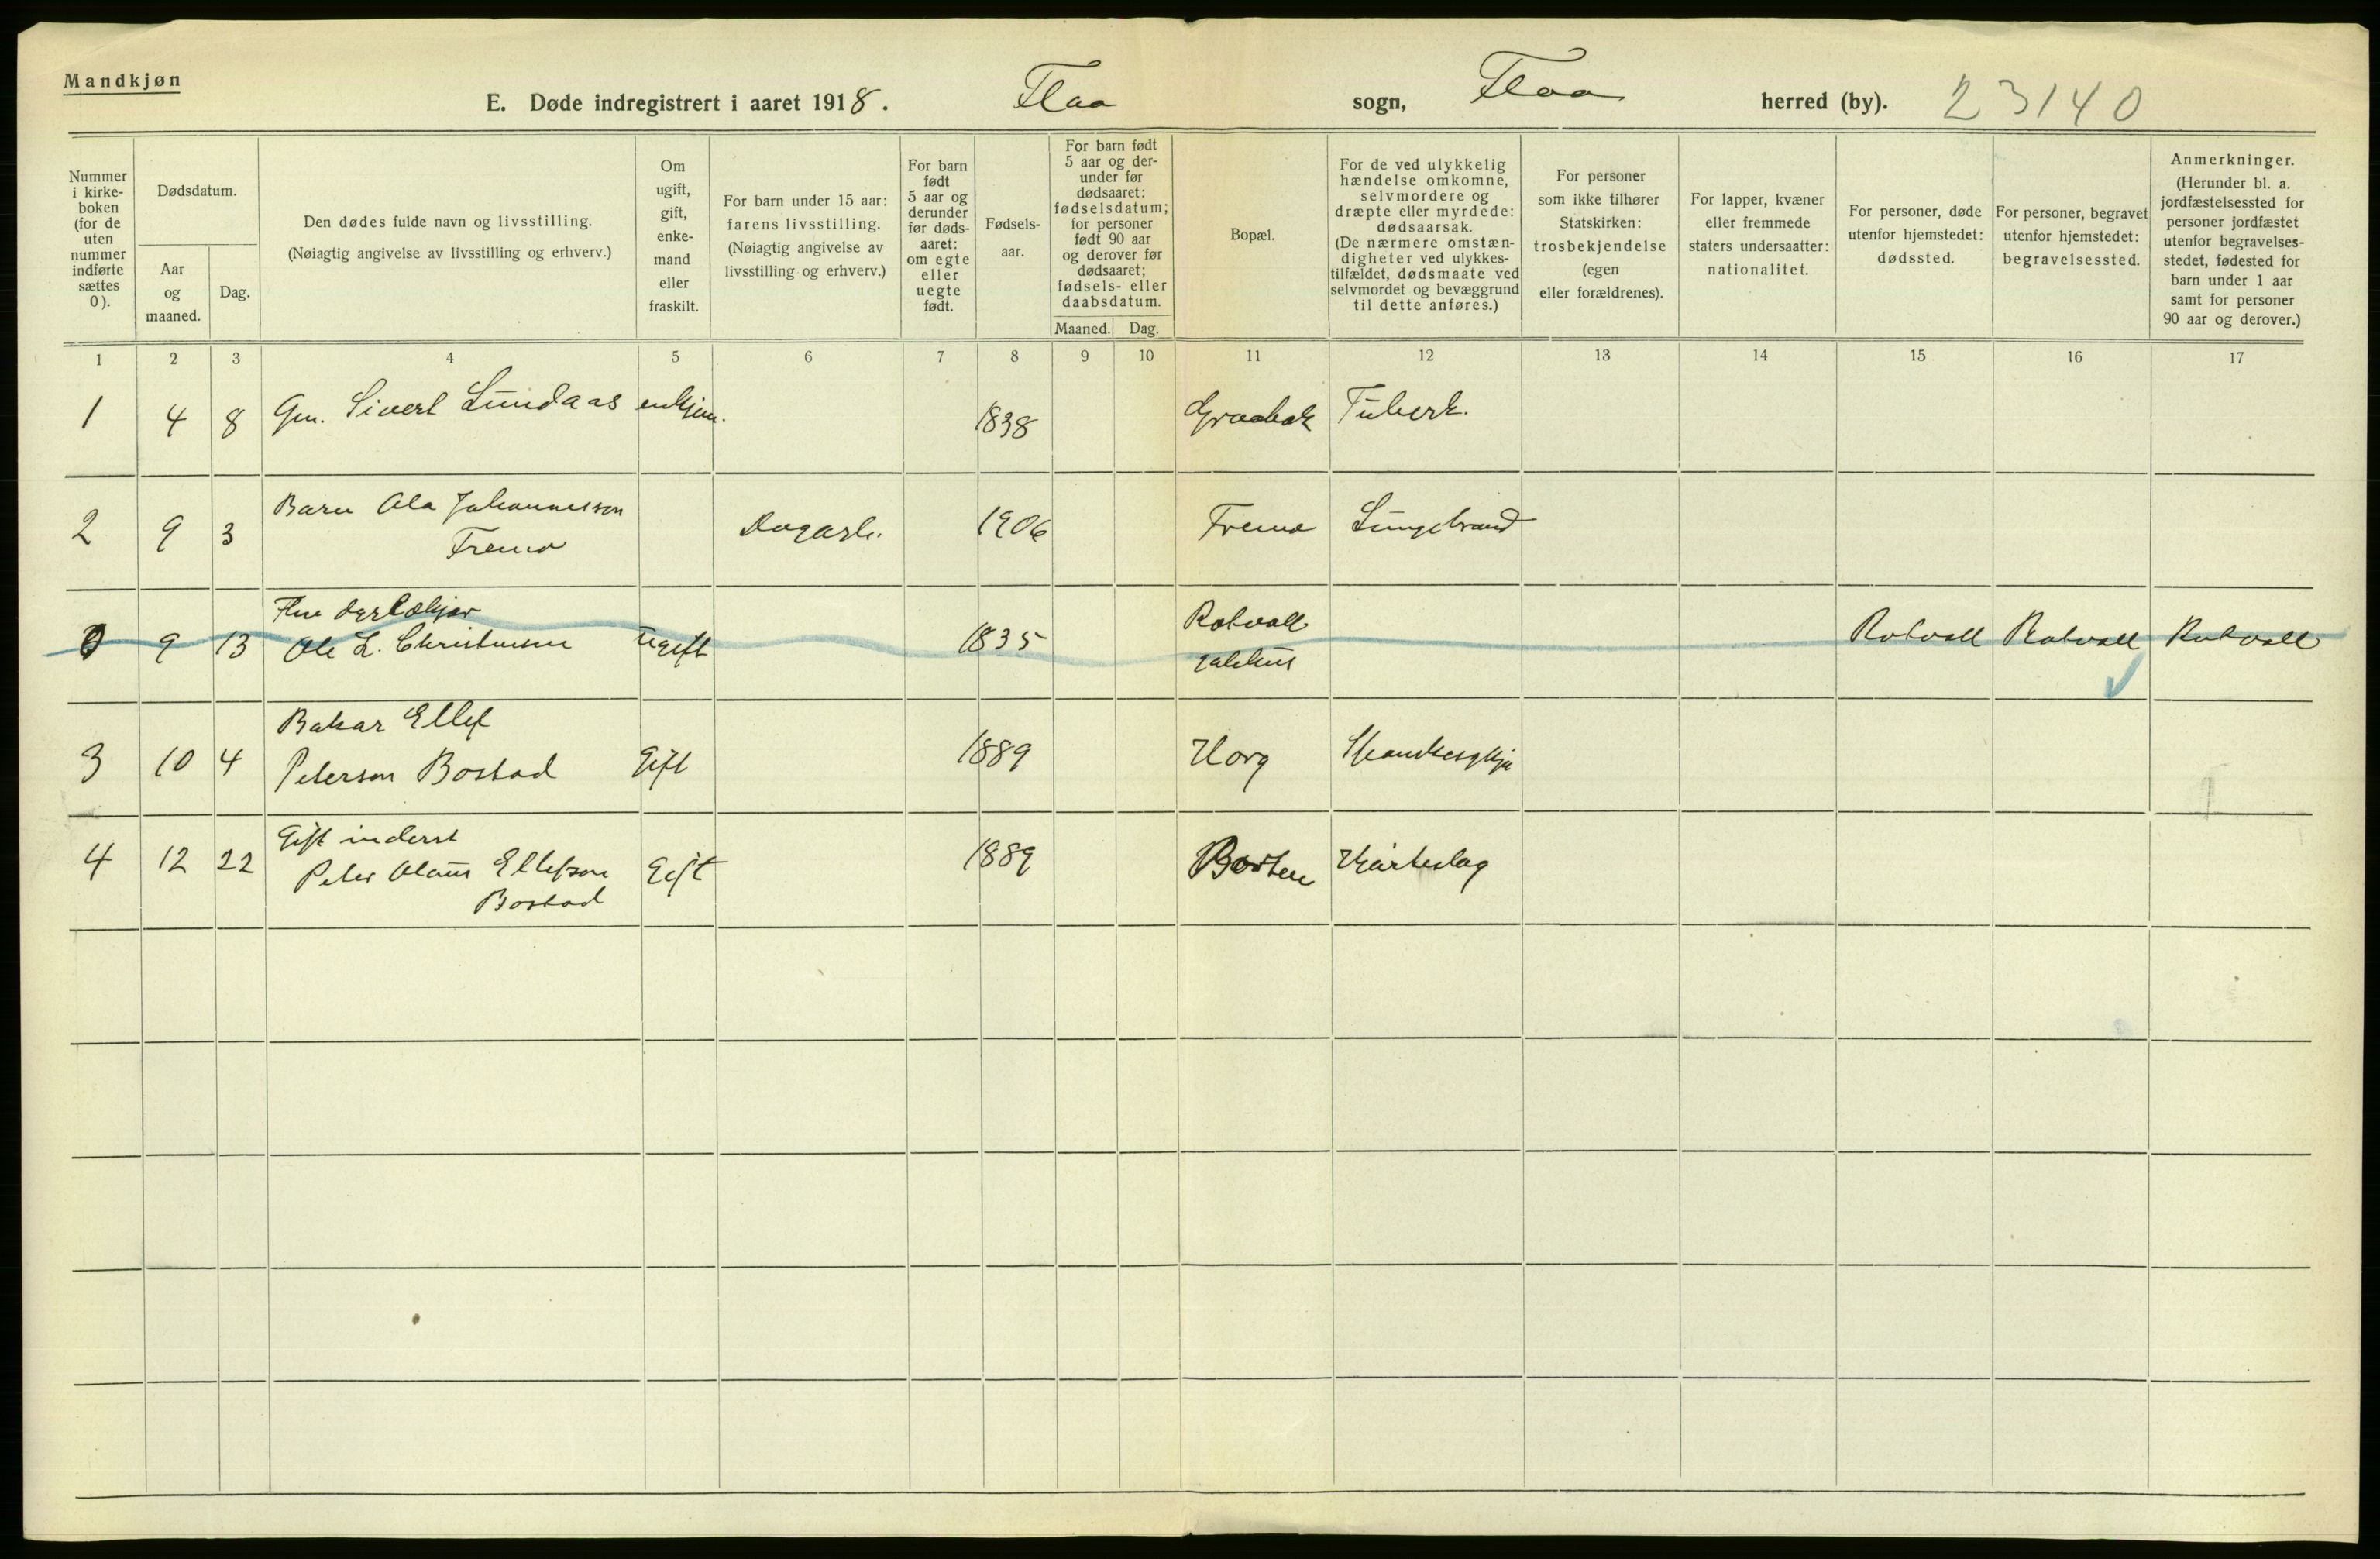 Mandkjøn
E. Døde indregistrert i aaret 1918. Flaa sogn, Flaa herred (by). 23140
Nummer i kirke- boken (for de uten nummer indførte sættes 0).
Dødsdatum.
Aar og maaned.
Dag.
Den dødes fulde navn og livsstilling.
(Nøiagtig angivelse av livsstilling og erhverv.)
Om ugift, gift, enke- mand eller fraskilt.
For barn under 15 aar: farens livsstilling. (Nøiagtig angivelse av livsstilling og erhverv.)
For barn født 5 aar og derunder før døds- aaret: om egte eller uegte født.
Fødsels- aar.
For barn født 5 aar og der- under før dødsaaret: fødselsdatum; for personer født 90 aar og derover før dødsaaret; fødsels- eller daabsdatum.
Maaned. Dag.
Bopæl.
For de ved ulykkelig hændelse omkomne, selvmordere og dræpte eller myrdede: dødsaarsak. (De nærmere omstæn- digheter ved ulykkes- tilfældet, dødsmaate ved selvmordet og bevæggrund til dette anføres.)
For personer som ikke tilhører Statskirken: trosbekjendelse (egen eller forældrenes).
For lapper, kvæner eller fremmede staters undersaatter: nationalitet.
For personer, døde utenfor hjemstedet: dødssted.
For personer, begravet utenfor hjemstedet: begravelsessted.
Anmerkninger. (Herunder bl. a. jordfæstelsessted for personer jordfæstet utenfor begravelses- stedet, fødested for barn under 1 aar samt for personer 90 aar og derover.)
1 2 3 4 5 6 7 8 9 10 11 12 13 14 15 16 17
1 4 8 Gm. Sivert Lundaas enkjem. 1838 Graabak Tuberk.
2 9 3 Barn Ola Johannesson
Fremo Dagarb. 1906 Fremo Lungebrand
0 9 13
Ole L. Christensen ugift 1835 Rotvoll Rotvoll Rotvoll Rotvoll
3 10 4 Bakar Ellef
Peterson Bostad Gift 1889 Horg
4 12 22 Gift inderst
Peter Olaus Ellefson
Bostad Gift 1889 Borten Hjarteslag